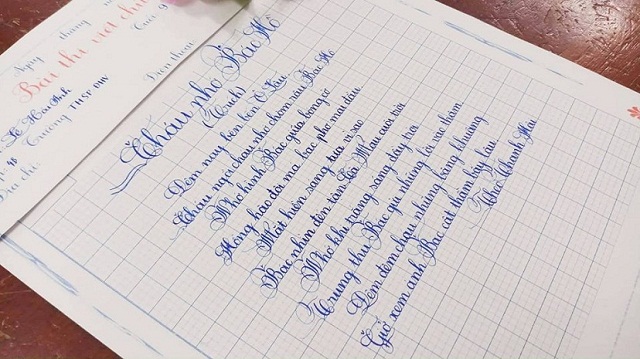 Ngày tháng
Bài thi viết chữ
Trường THSP ĐHV
Điện thoại
Địa chỉ
Cháu nhớ Bác Hồ
(Trích)
Đêm nay bên bến Ô Lâu
Cháu ngồi cháu nhớ chòm râu Bác Hồ
Nhớ hình Bác giữa bóng cờ
Hồng hào đôi má bạc phơ mái đầu
Mắt hiền sáng tựa vì sao
Bác nhìn đến tận Cà Mau cuối trời
Nhớ khi trăng sáng đầy trời
Trung thu Bác gửi những lời vào thăm
Đêm đêm cháu những bâng khuâng
Giở xem ảnh Bác cất thầm bấy lâu
Theo Thanh Hải